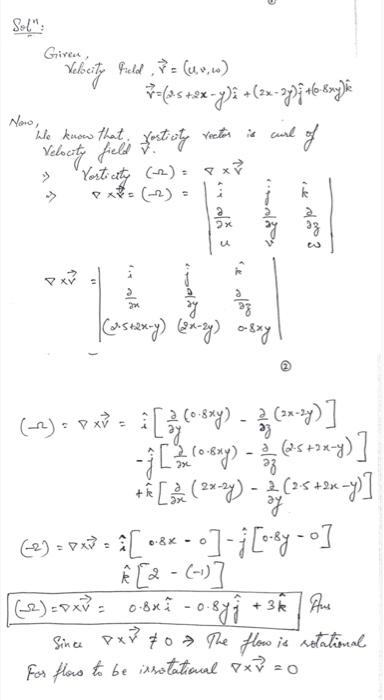 ①
Solⁿ:
Given,
Velocity field, v⃗ = (u,v,w)
v⃗ = (2.5+2x-y)î + (2x-2y)ĵ + (0.8xy)k̂
Now,
We know that, vorticity vector is curl of
Velocity field v⃗.
⇒ Vorticity (Ω) = ∇ × v⃗
⇒ ∇ × v⃗ = (Ω) = | î ĵ k̂ |
| ∂/∂x ∂/∂y ∂/∂z |
| u v w |
∇ × v⃗ = | î ĵ k̂ |
| ∂/∂x ∂/∂y ∂/∂z |
| (2.5+2x-y) (2x-2y) 0.8xy |
②
(Ω) = ∇ × v⃗ = î [ ∂/∂y (0.8xy) - ∂/∂z (2x-2y) ]
-ĵ [ ∂/∂x (0.8xy) - ∂/∂z (2.5+2x-y) ]
+k̂ [ ∂/∂x (2x-2y) - ∂/∂y (2.5+2x-y) ]
(Ω) = ∇ × v⃗ = î [ 0.8x - 0 ] - ĵ [ 0.8y - 0 ]
k̂ [ 2 - (-1) ]
(Ω) = ∇ × v⃗ = 0.8x î - 0.8y ĵ + 3k̂ Ans
Since ∇ × v⃗ ≠ 0 ⇒ The flow is rotational
For flow to be irrotational ∇ × v⃗ = 0